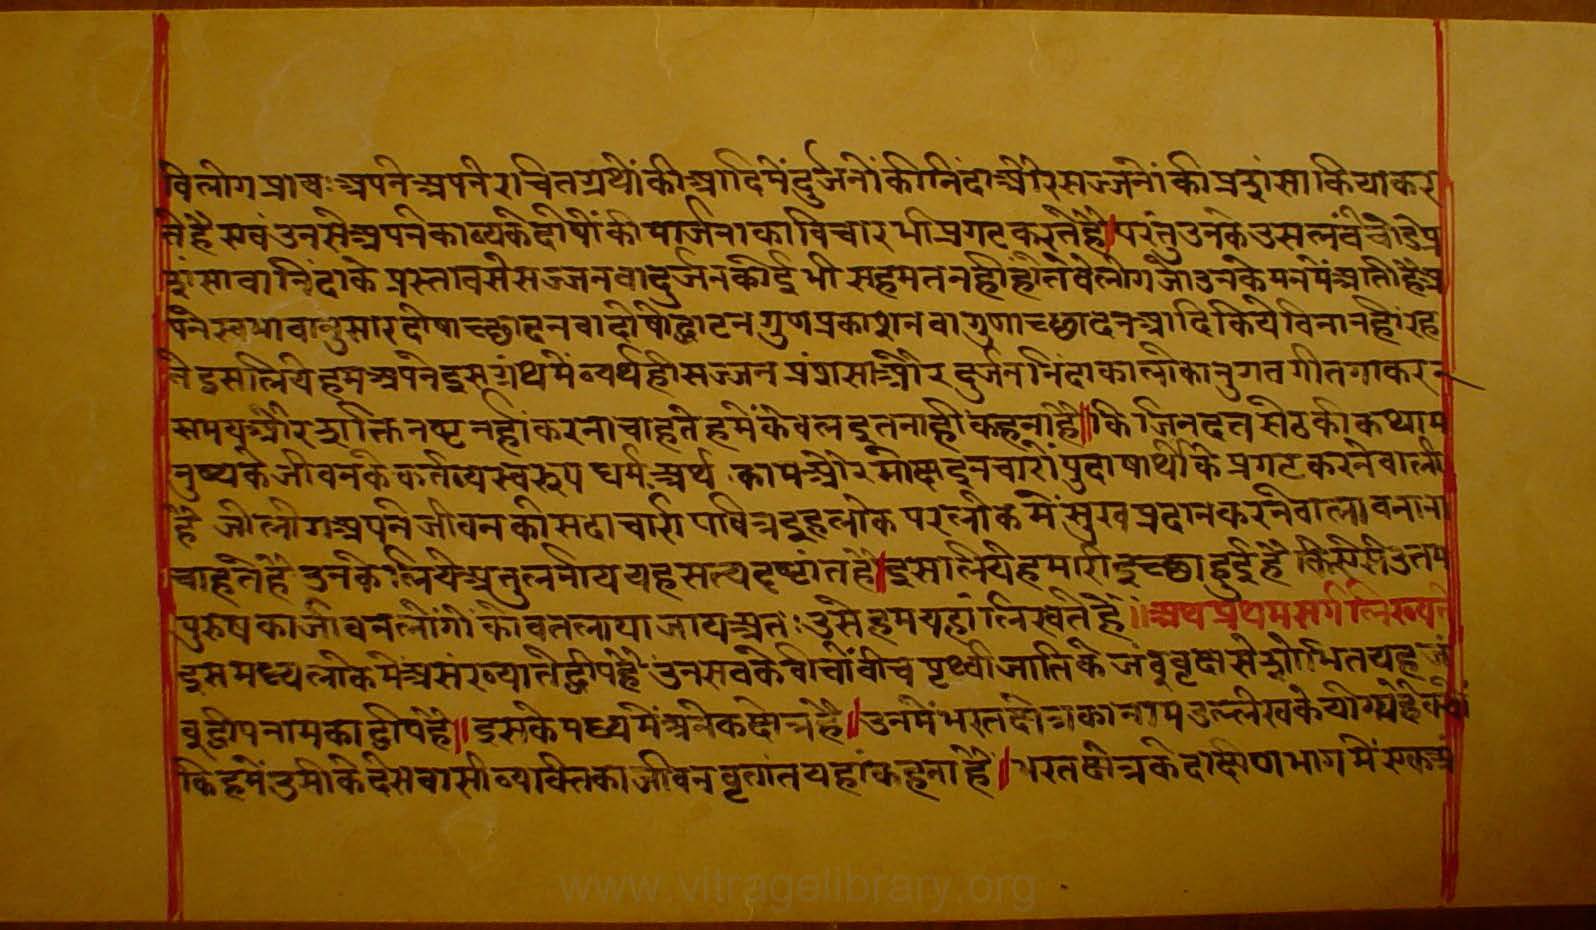 विलोगप्रायःअपनेअपनेरचितग्रंथोंकीआदिमेंदुर्जनोंकीनिंदाऔरसज्जनोंकीप्रशंसाकियाकर
तेहैंएवंउनसेअपनेकाव्यकेदोषोंकीमार्जनाकाविचारभीप्रगटकरतेहैं।परंतुउनकेउसलंवेचोडेप्र
शंसावानिंदाके प्रस्तावसेसज्जनवादुर्जनकोईभी सहमतनहींहोतेवेलोगजोउनकेमनमेंआतीहैअ
पनेस्वभावानुसारदोषाच्छादनवादोषोद्घाटनगुणप्रकाशनवागुणाच्छादनआदिकियेविनानहींरह
तेइसलियेहमअपनेइसग्रंथमेंव्यर्थहीसज्जनप्रंशसाऔरदुर्जननिंदाकालोकानुगतगीतगाकर
समयऔरशक्तिनष्टनहींकरनाचाहतेहमेंकेवलइतनाहीकहनाहै॥किजिनदत्तसेठकीकथाम
नुष्यकेजीवनकेकर्तव्यस्वरूप धर्म,अर्थ,कामऔरमोक्षइनचारोंपुरुषार्थोंकेप्रगटकरनेवाली
है जोलोगअपनेजीवनकोसदाचारीपवित्रइहलोकपरलोकमेंसुखप्रदानकरनेवालावनाना
चाहतेहैं उनकेलियेअतुलनीययहसत्यदृष्टांतहै।इसलियेहमारीइच्छाहुईहैकिऐसेउत्तम
पुरुषकाजीवनलोगोंकोवतलायाजायअतः उसेहमयहांलिखतेहैं॥अथप्रथमसर्गलिख्यते
इसमध्यलोकमेंअसंख्यातेद्वीपहैंउनसवकेवीचोंवीचपृथ्वीजातिकेजंवुवृक्षसेशोभितयहजं
वुद्वीपनामकाद्वीपहै॥इसकेमध्यमेंअनेकक्षेत्रहैं॥उनमेंभरतक्षेत्रकानामउल्लेखकेयोग्यहैक्यों
किहमेंउसीकेदेसवासीव्यक्तिकाजीवनवृत्तांतयहांकहनाहै।भरतक्षेत्रकेदक्षिणभागमेंएकअं
www.vitragelibrary.org